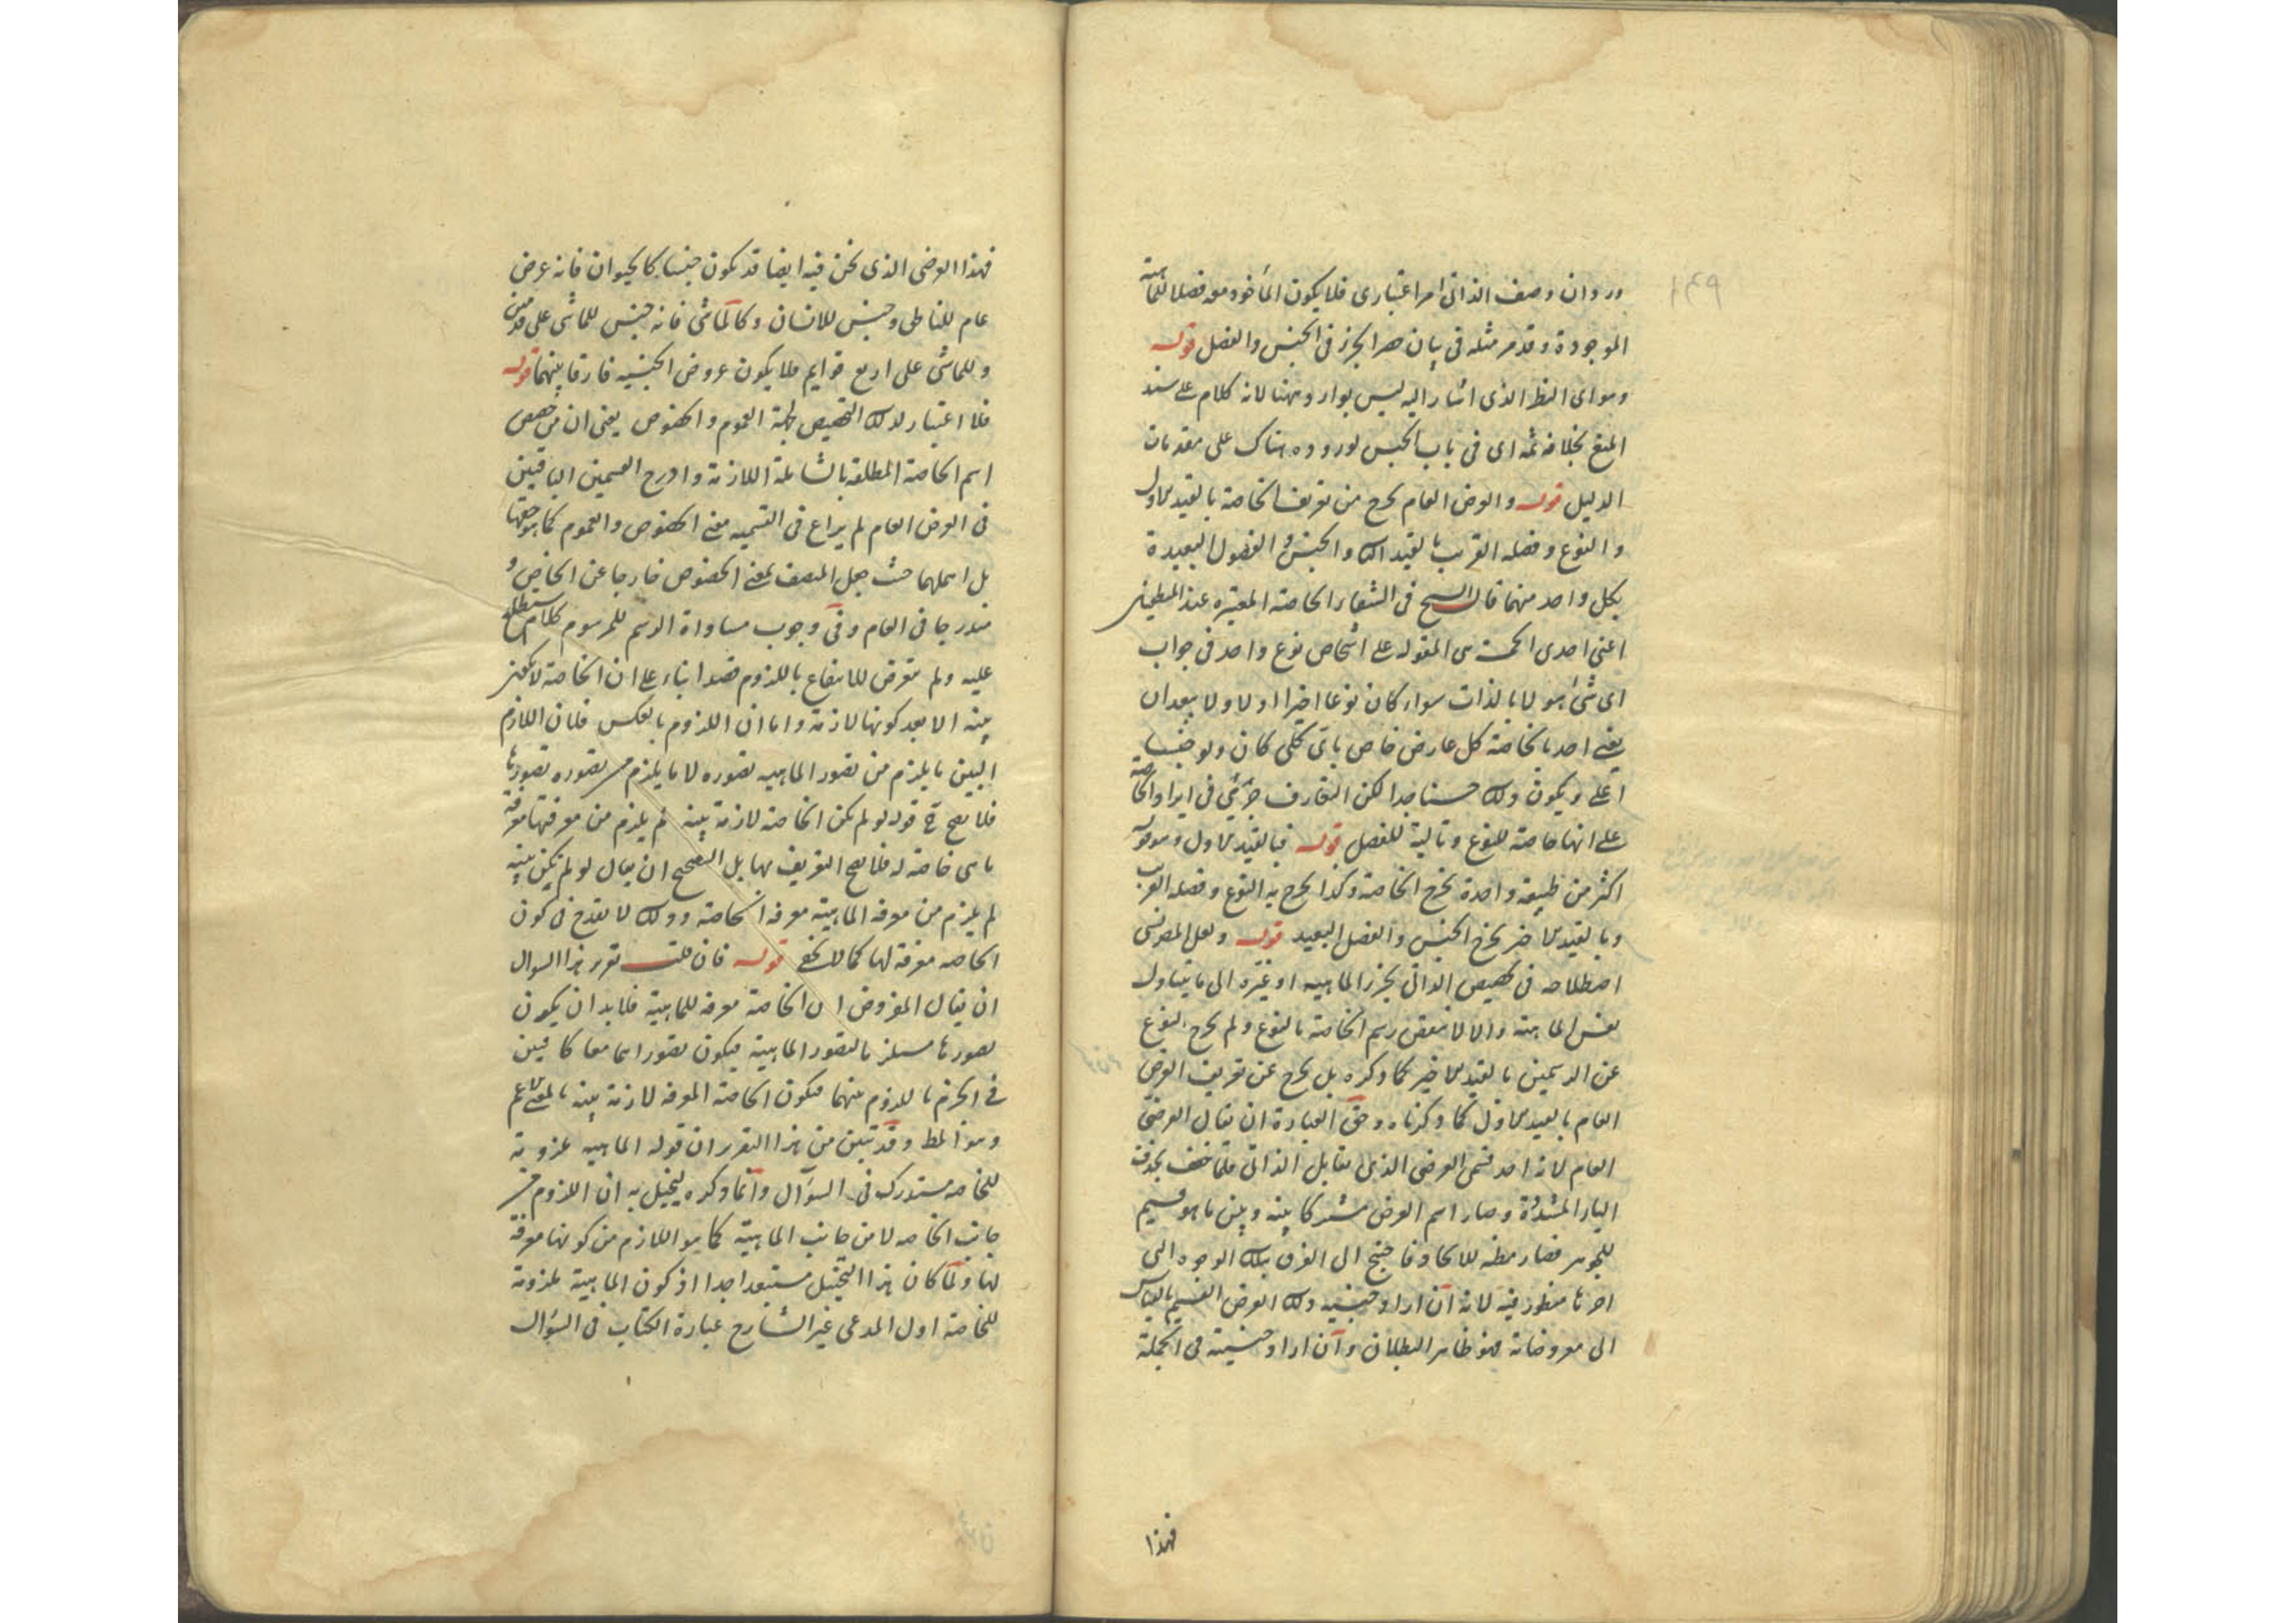 ور وان وصف الذاتى امر اعتبارى فلا يكون المأخوذ معه فصلا للماهية
الموجودة وقد مر مثله فى بيان حصر الجزء فى الجنس والفصل قوله
وهو اى النظر الذى اشار اليه ليس بوارد ههنا لانه كلام على سند
المنع بخلافه ثمه اى فى باب الجنس لوروده هناك على مقدمات
الدليل قوله والعرض العام يخرج من تعريف الخاصة بالقيد الاول
والنوع وفصله القريب بالقيد الثانى والجنس والفصول البعيدة
بكل واحد منهما قال الشيخ فى الشفاء الخاصة المعتبره عند المنطقيين
اعنى احدى الخمسة هى المقوله على اشخاص نوع واحد فى جواب
اى شئ هو لا بالذات سواء كان نوعا اخيرا اولا ولا يبعد ان
يعنى احد بالخاصة كل عارض خاص باى كلى كان ولو جنسا
اعلى ويكون ذلك حسنا جدا لكن التعارف جرى فى ايراد الخاصة
على انها خاصة للنوع وتالية للفصل قوله فبالقيد الاول وهو قوله
اكثر من طبيعة واحدة تخرج الخاصة وكذا يخرج به النوع وفصله القريب
وبالقيد الاخير يخرج الجنس والفصل البعيد قوله ولعل المص نسى
اصطلاحه فى تخصيص الذاتى بجزء الماهيه او غيره الى ما يتناول
نفس الماهية والا لانتقض رسم الخاصة بالنوع ولم يخرج النوع
عن الرسمين بالقيد الاخير كما ذكره بل يخرج عن تعريف العرض
العام بالقيد الاول كما ذكرناه وحق العبارة ان يقال العرضى
العام لانه احد قسمى العرضى الذى يقابل الذاتى فلما خفف بحذف
الياء المشددة وصار اسم العرض مشتركا بينه وبين ما هو قسيم
للجوهر فصار مظنه للاتحاد فاحتيج الى الفرق بتلك الوجوه التى
اخرها منظور فيه لانه ان اراد جنسيه ذلك العرض القسيم بالقياس
الى معروضاته فهو ظاهر البطلان وان اراد جنسيته فى الجملة
فهذا
فهذا العرضى الذى نحن فيه ايضا قد يكون جنسا كالحيوان فانه عرض
عام للناطق وجنس للانسان وكالماشى فانه جنس للماشى على قدمين
وللماشى على اربع قوايم فلا يكون عروض الجنسيه فارقا بينهما قوله
فلا اعتبار لذلك التخصيص لجهة العموم والخصوص يعنى ان من خصص
اسم الخاصة المطلقه بالشاملة اللازمة وادرج القسمين الباقيين
فى العرض العام لم يراع فى التسميه معنى الخصوص والعموم كما هو حقها
بل اهملهما حيث جعل المتصف بمعنى الخصوص خارجا عن الخاص و
مندرجا فى العام وفى وجوب مساواة الرسم للمرسوم كلام ستطلع
عليه ولم يتعرض للانتفاع باللزوم قصدا بناء على ان الخاصة لا تكون
بينه الا بعد كونها لازمة واما ان اللزوم بالعكس فلان اللازم
البين ما يلزم من تصور الماهيه تصوره لا ما يلزم من تصوره تصورها
فلا يصح ح قوله لو لم تكن الخاصة لازمة بينه لم يلزم من معرفتها معرفة
ما هى خاصة له فلا يصح التعريف بها بل الصحيح ان يقال لو لم تكن بينه
لم يلزم من معرفه الماهيه معرفه الخاصة وذلك لا يقدح فى كون
الخاصه معرفة لها كما لا يخفى قوله فان قلت تقرير هذا السوال
ان يقال المفروض ان الخاصة معرفه للماهية فلا بد ان يكون
تصورها مستلزما لتصور الماهية فيكون تصوراهما معا كافيين
فى الجزم باللزوم بينهما فيكون الخاصة المعرفه لازمة بينه بالمعنى الاعم
وهو المط وقد تبين من هذا التقرير ان قوله الماهيه ملزومة
للخاصه مستدرك فى السؤال وانما ذكره ليتخيل به ان اللزوم من
جانب الخاصه لا من جانب الماهية كما هو اللازم من كونها معرفة
لها ولما كان هذا التخيل مستبعدا جدا اذ كون الماهية ملزومة
للخاصة اول المدعى غير الشارح عبارة الكتاب فى السؤال